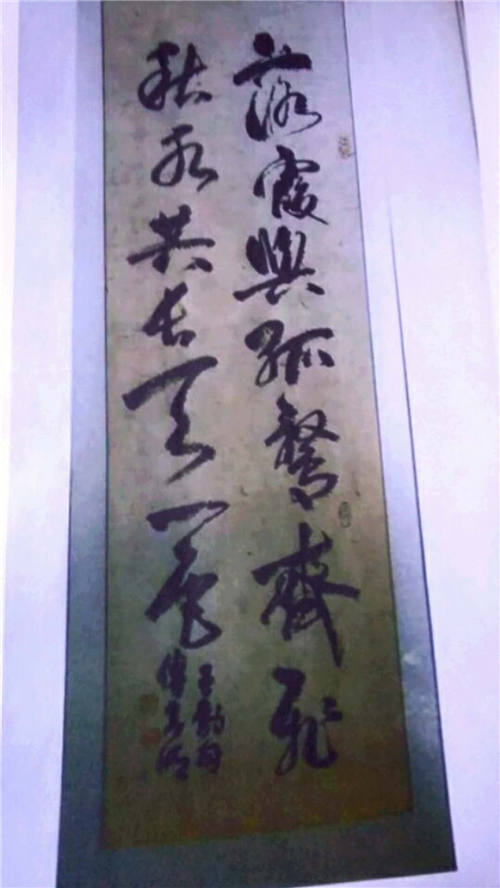 落霞與孤鶩齊飛
秋水共長天一色
王勃句